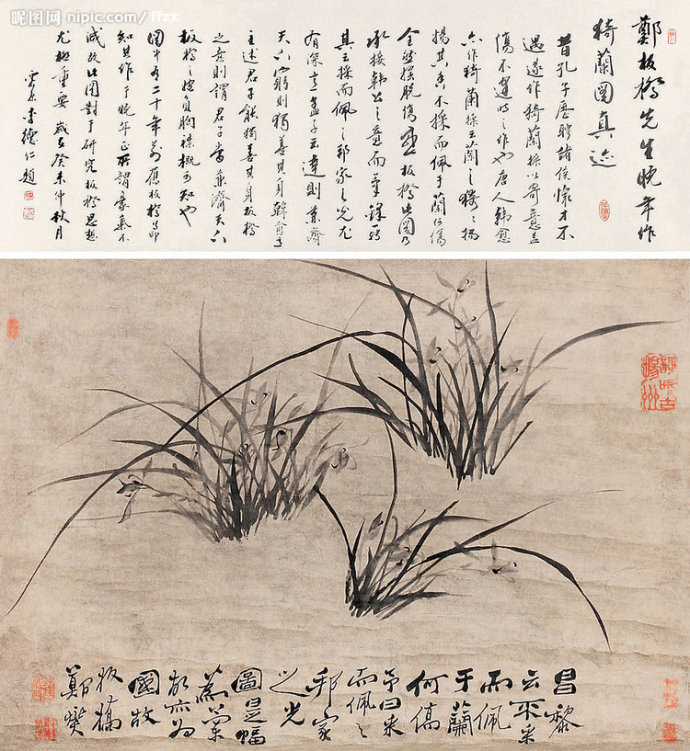 昵图网 nipic.com/ffzx
鄭板橋先生晚年作
猗蘭圖真迹
昔孔子歷聘諸侯懷才不
遇遂作猗蘭操以寄意蓋
傷不逢時之作也唐人韓愈
亦作猗蘭操云蘭之猗猗揚
揚其香不採而佩于蘭何傷
全然擺脫傷感板橋此圖乃
承接韓公之意而筆錄
其云採而佩之邦家之光尤
有深意孟子云達則兼濟
天下窮則獨善其身韓
主述君子能獨善其身板橋
之意則謂君子當兼濟天下
板橋之抱負胸襟概可知也
圖中有二十年前舊板橋之印
知其作于晚年正所謂氣不
減故此圖對于研究板橋思想
尤極重要 歲在癸未仲秋月
李德仁題
歌吹古揚州
昌黎
云不采
而佩
于蘭
何傷
予曰采
而佩之
邦家
之光
圖是幅
爲蘭
亦爲
國故
板橋
鄭燮